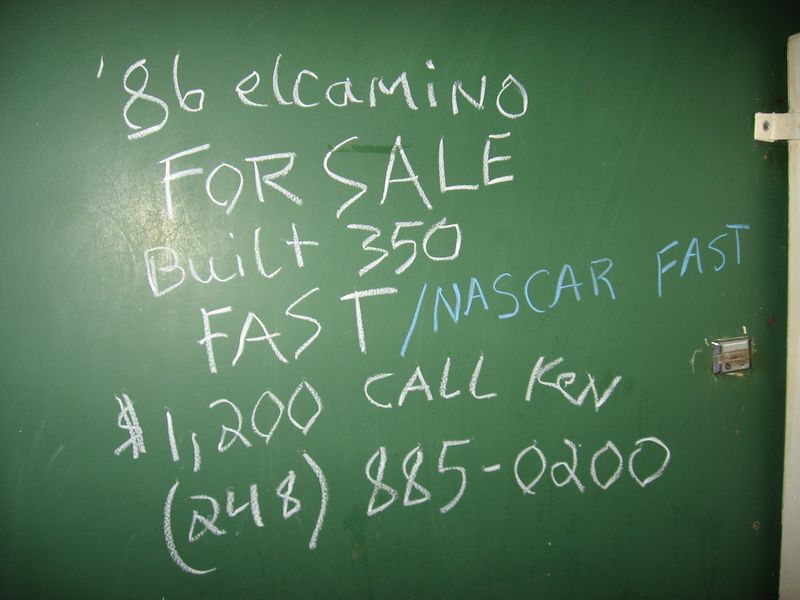 '86 elcamino
FOR SALE
Built 350
FAST /NASCAR FAST
$1,200 CALL Ken
(248) 885-0200